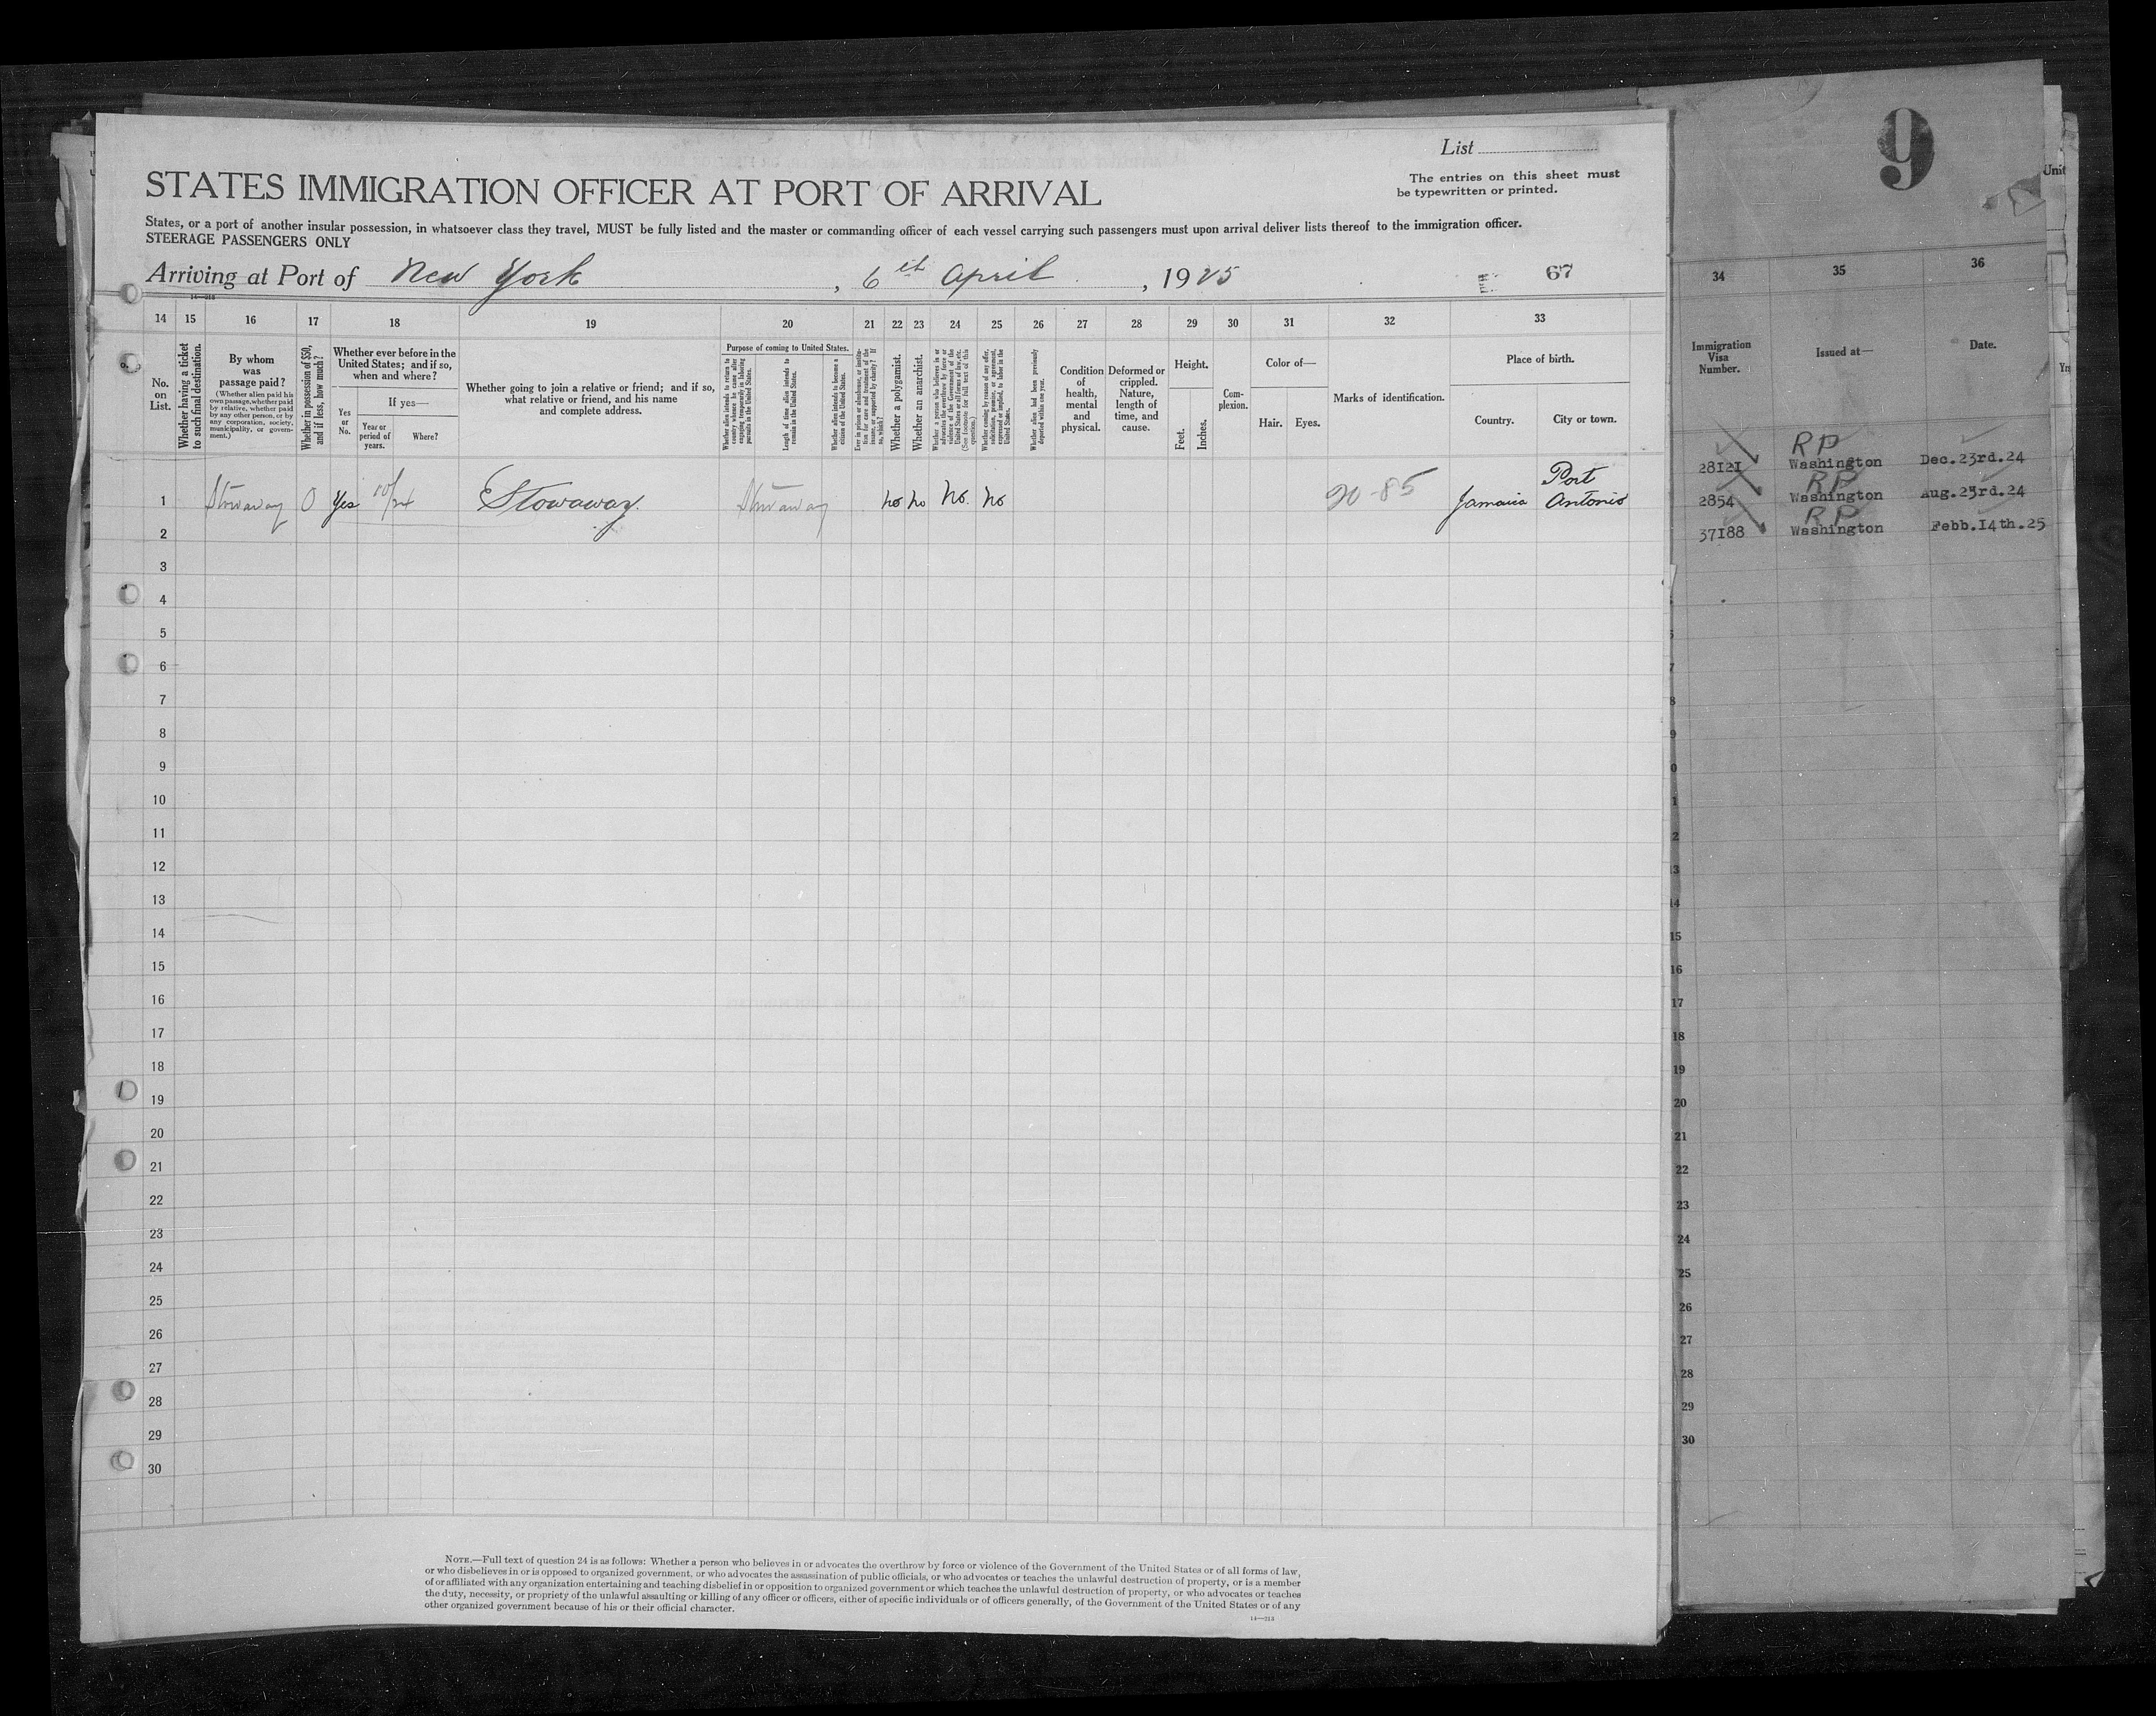 List
The entries on this sheet must
be typewritten or printed.
STATES IMMIGRATION OFFICER AT PORT OF ARRIVAL
States, or a port of another insular possession, in whatsoever class they travel, MUST be fully listed and the master or commanding officer of each vessel carrying such passengers must upon arrival deliver lists thereof to the immigration officer.
STEERAGE PASSENGERS ONLY
Arriving at Port of New York, 6th April, 1925
67
14—313
14 15 16 17 18 19 20 21 22 23 24 25 26 27 28 29 30 31 32 33
No. on List.
Whether having a ticket to such final destination.
By whom was passage paid?
(Whether alien paid his own passage, whether paid by relative, whether paid by any other person, or by any corporation, society, municipality, or government.)
Whether in possession of $50, and if less, how much?
Whether ever before in the United States; and if so, when and where?
If yes—
Yes or No.
Year or period of years.
Where?
Whether going to join a relative or friend; and if so, what relative or friend, and his name and complete address.
Purpose of coming to United States.
Whether alien intends to return to country whence he came after engaging temporarily in laboring pursuits in the United States.
Length of time alien intends to remain in the United States.
Whether alien intends to become a citizen of the United States.
Ever in prison or almshouse, or institution for care and treatment of the insane, or supported by charity? If so, which?
Whether a polygamist.
Whether an anarchist.
Whether a person who believes in or advocates the overthrow by force or violence of the Government of the United States or all forms of law, etc. (See footnote for full text of this question.)
Whether coming by reason of any offer, solicitation, promise, or agreement, expressed or implied, to labor in the United States.
Whether alien had been previously deported within one year.
Condition of health, mental and physical.
Deformed or crippled. Nature, length of time, and cause.
Height.
Feet.
Inches.
Complexion.
Color of—
Hair.
Eyes.
Marks of identification.
Place of birth.
Country.
City or town.
1 Stowaway 0 Yes 10/24 Stowaway. Stowaway no no no. no 20-85 Jamaica Port Antonio
2
3
4
5
6
7
8
9
10
11
12
13
14
15
16
17
18
19
20
21
22
23
24
25
26
27
28
29
30
NOTE.—Full text of question 24 is as follows: Whether a person who believes in or advocates the overthrow by force or violence of the Government of the United States or of all forms of law,
or who disbelieves in or is opposed to organized government, or who advocates the assassination of public officials, or who advocates or teaches the unlawful destruction of property, or is a member
of or affiliated with any organization entertaining and teaching disbelief in or opposition to organized government or which teaches the unlawful destruction of property, or who advocates or teaches
the duty, necessity, or propriety of the unlawful assaulting or killing of any officer or officers, either of specific individuals or of officers generally, of the Government of the United States or of any
other organized government because of his or their official character.
14—313
9
Unit
34 35 36
Immigration Visa Number.
Issued at—
Date.
RP
28121 Washington Dec.23rd.24
RP
2854 Washington Aug.23rd.24
RP
37188 Washington Febb.14th.25
5
7
8
9
0
1
2
13
14
15
16
17
18
19
20
21
22
23
24
25
26
27
28
29
30